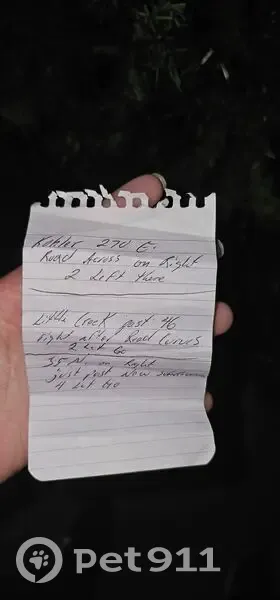 Kohler 270 E.
Road Across on Right
2 Left there
Little Creek post 46
right after Road Curves
2 Let Go
35 N. on Right
just past New
4 Let Go
pet911